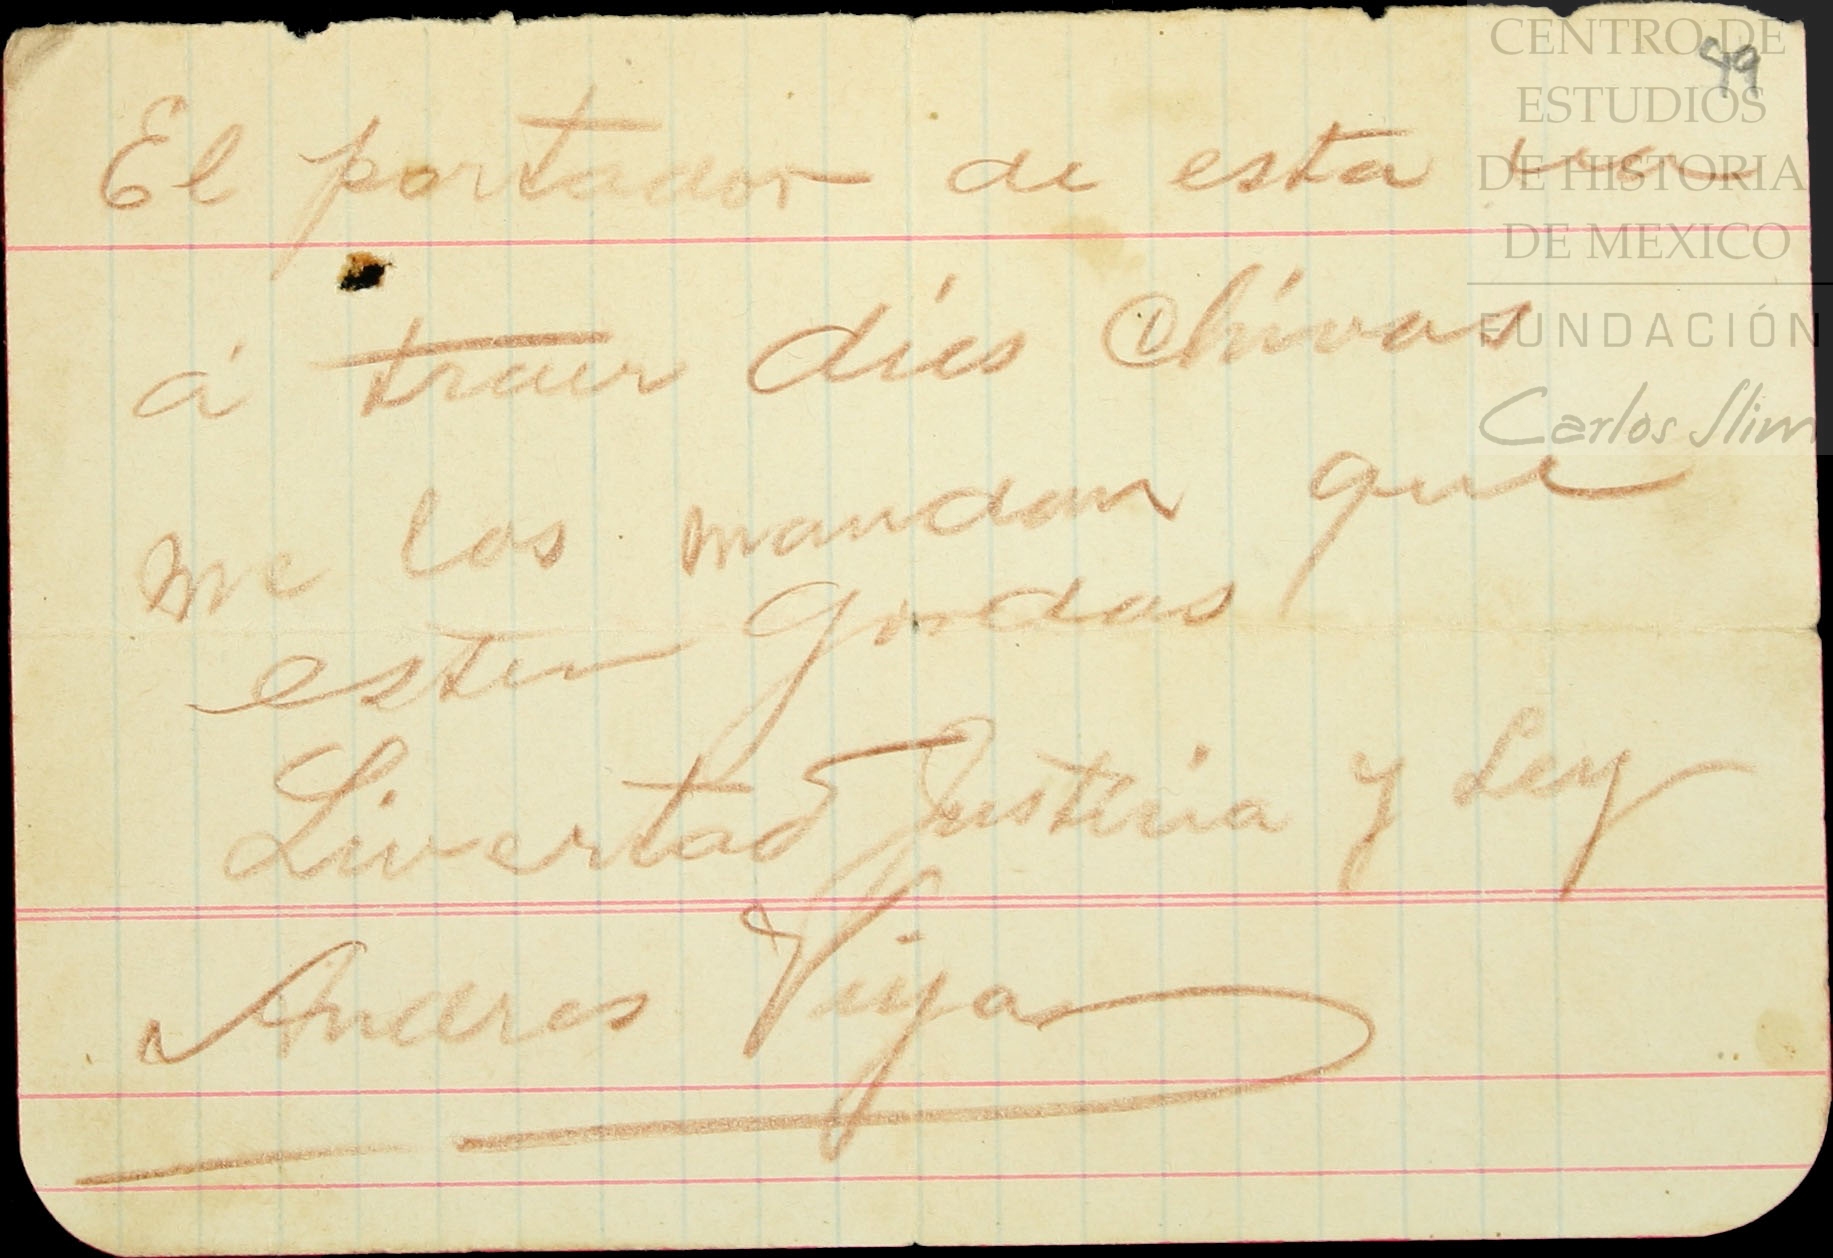 49
El portador de esta va
á traer díes Chivas
me las mandan que
esten gordas
Livertad Justicia y Ley
Andres Vega
CENTRO DE
ESTUDIOS
DE HISTORIA
DE MEXICO
FUNDACIÓN
Carlos Slim